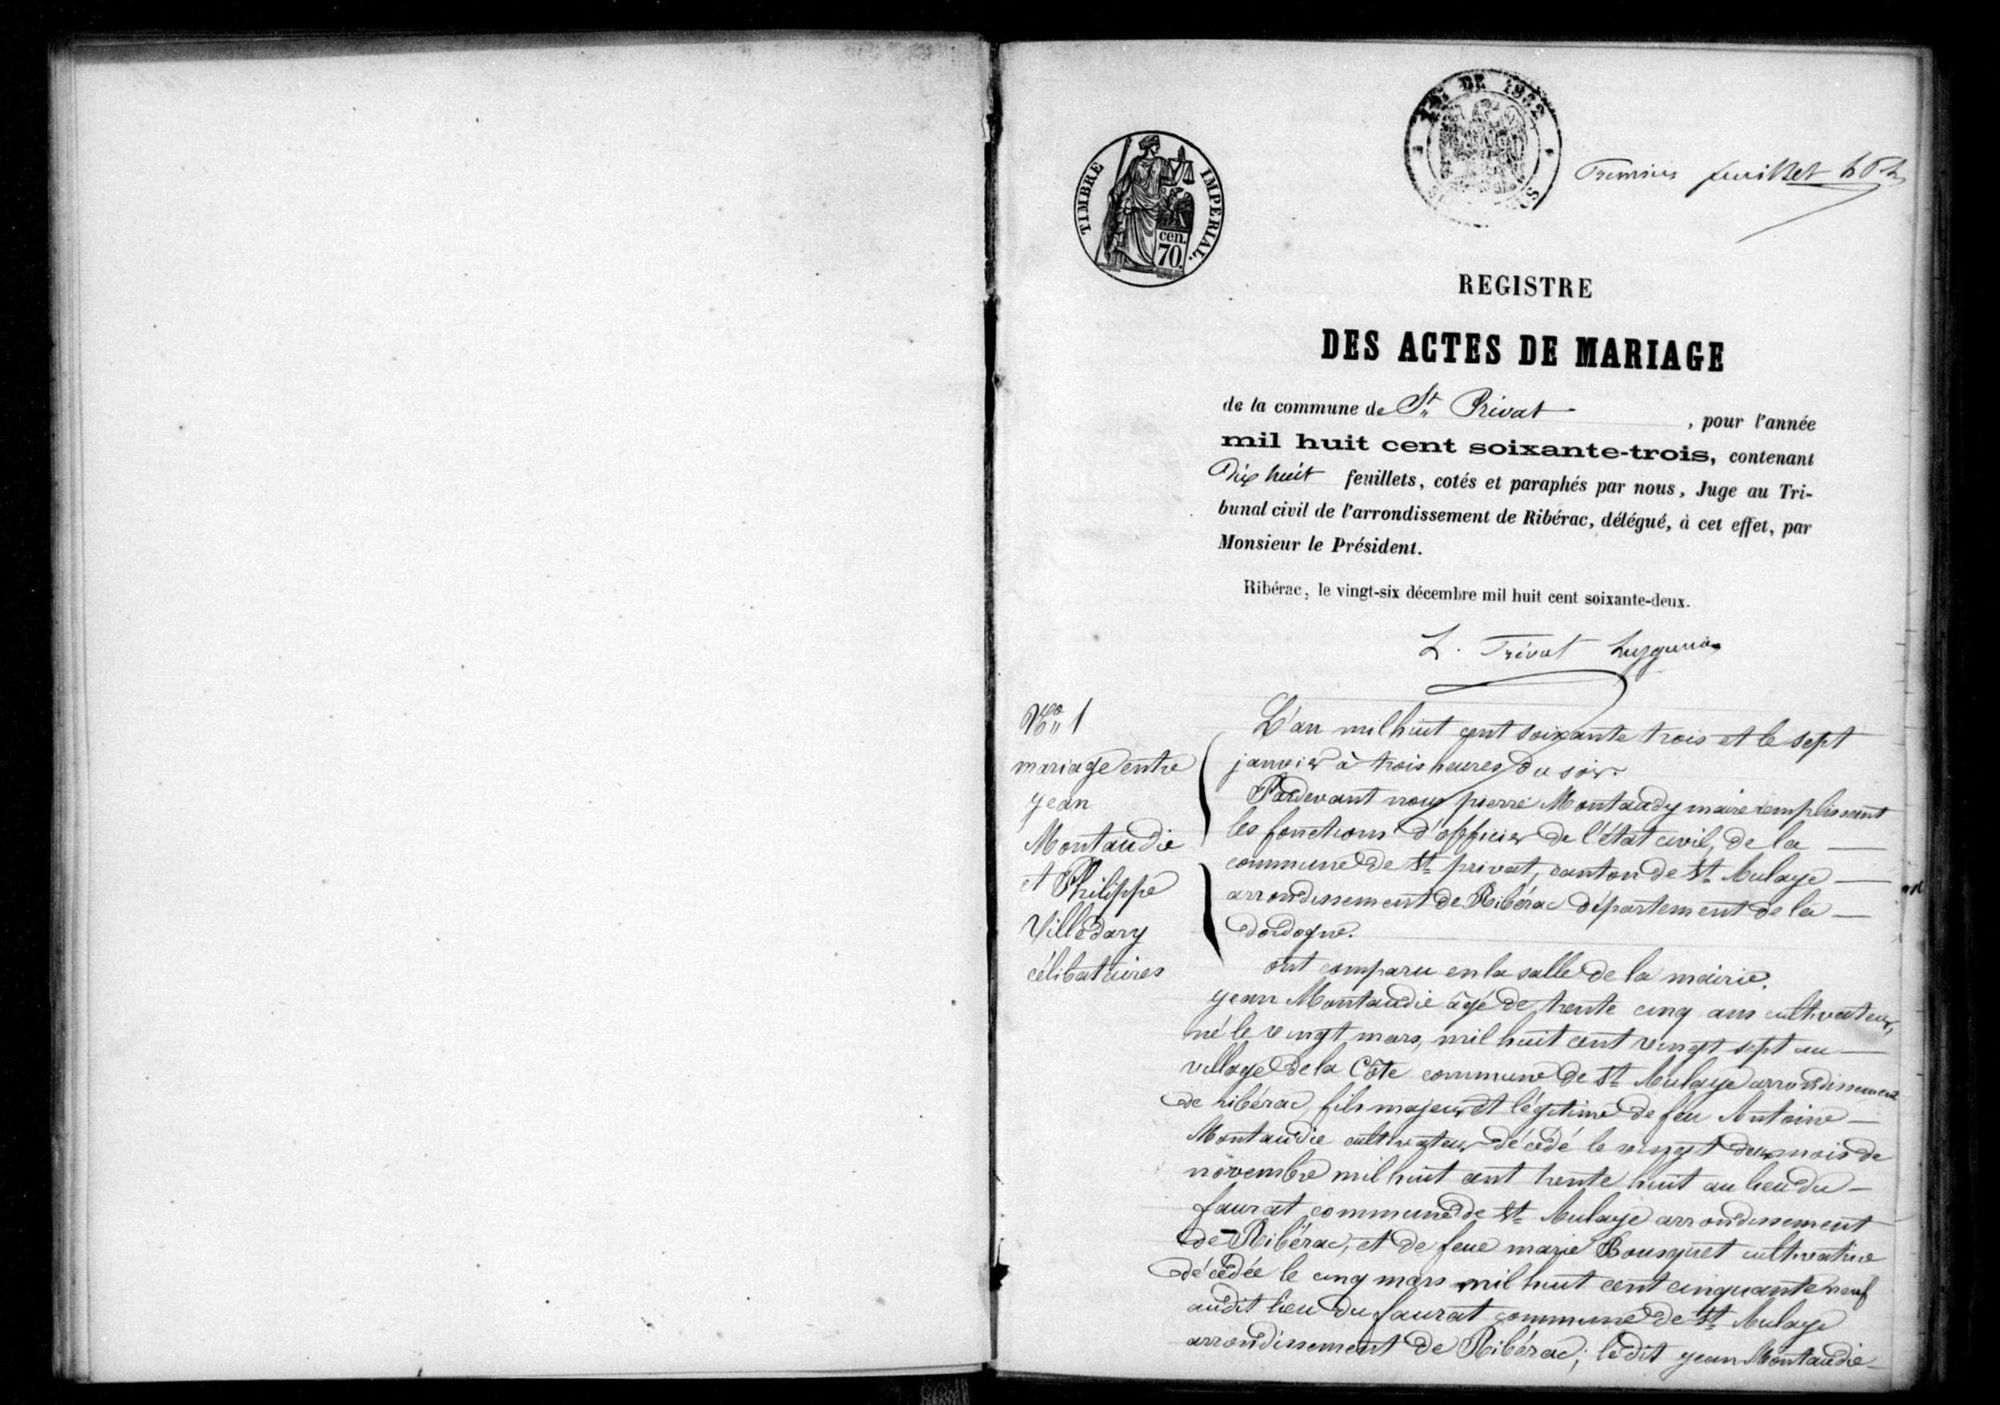 TIMBRE IMPERIAL.
cen.
70.
DE 1862
Premier feuillet
REGISTRE
DES ACTES DE MARIAGE
de la commune de St Privat, pour l'année
mil huit cent soixante-trois, contenant
Dix huit feuillets, cotés et paraphés par nous, Juge au Tri-
bunal civil de l'arrondissement de Ribérac, délégué, à cet effet, par
Monsieur le Président.
Ribérac, le vingt-six décembre mil huit cent soixante-deux.
No 1
mariage entre
jean
Montaudie
et Philippe
Villedary
célibataires
L'an mil huit cent soixante trois et le sept
janvier à trois heures du soir.
Pardevant nous pierre Montaudy maire remplissant
les fonctions d'officier de l'état civil, de la
commune de St privat, canton de St Aulaye
arrondissement de Ribérac département de la
dordogne.
ont comparu en la salle de la mairie.
jean Montaudie âgé de trente cinq ans cultivateur,
né le vingt mars, mil huit cent vingt sept au
village de la Côte commune de St Aulaye arrondissement
de ribérac, fils majeur et légitime de feu Antoine
Montaudie cultivateur décédé le vingt deux mois de
novembre mil huit cent trente huit au lieu du
faurat commune de St Aulaye arrondissement
de Ribérac, et de feue marie Bousquet cultivatrice
décédée le cinq mars mil huit cent cinquante neuf
audit lieu du faurat commune de St Aulaye
arrondissement de Ribérac; ledit jean Montaudie